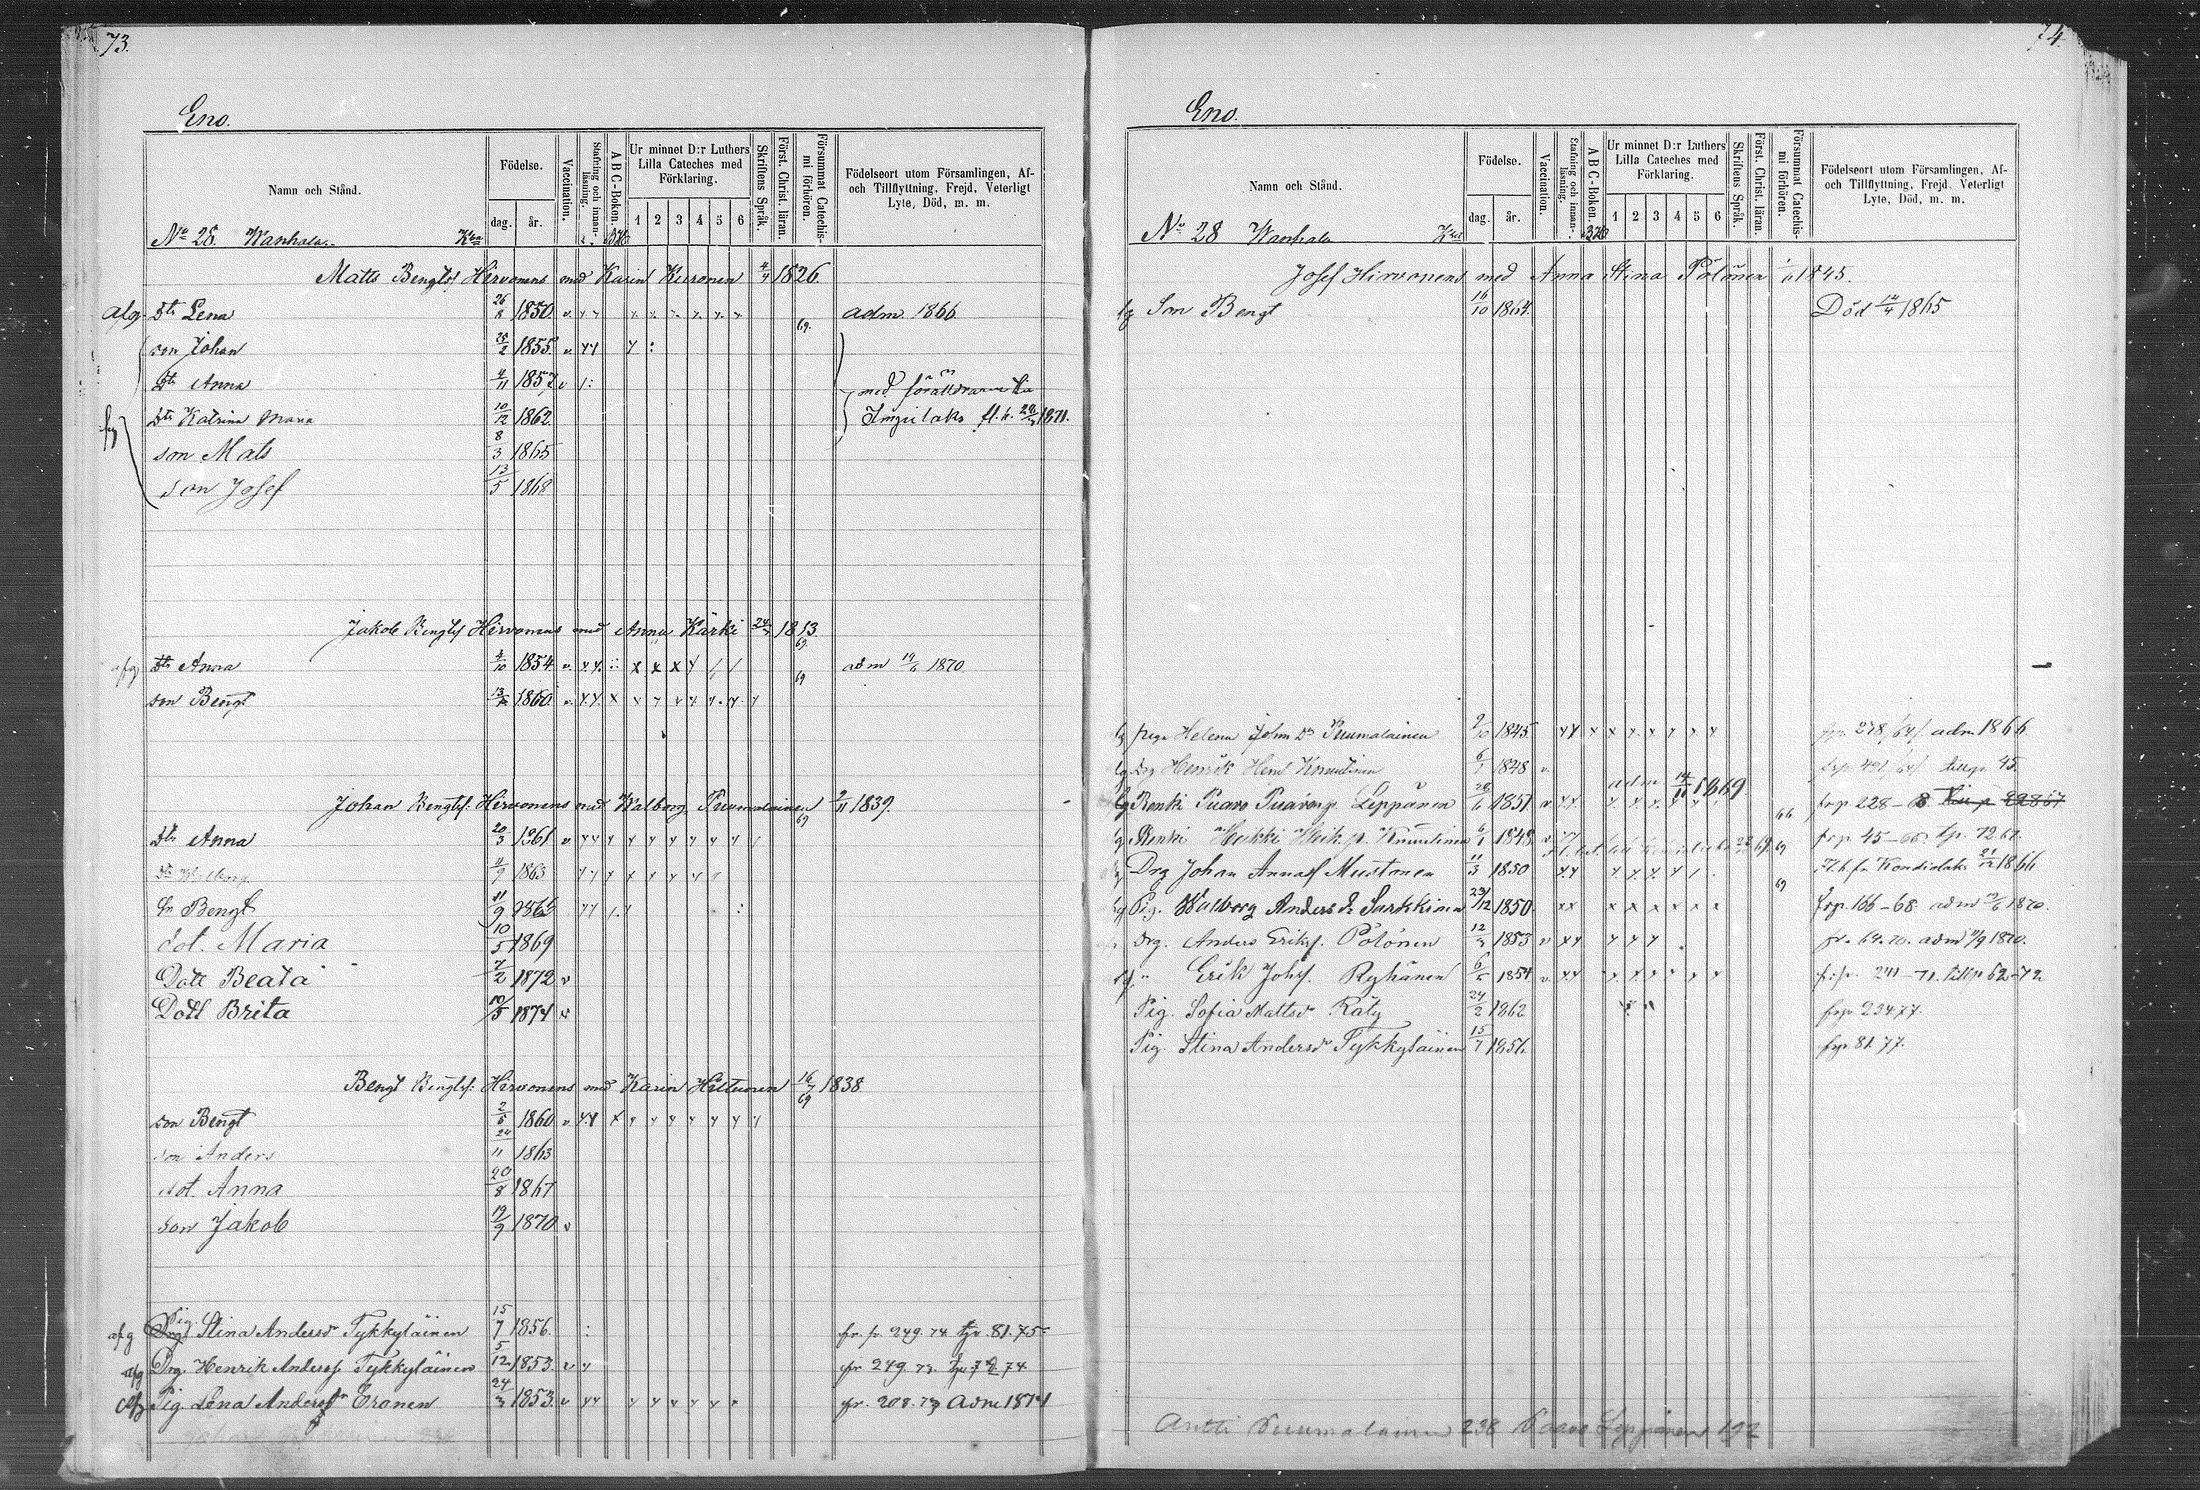 73.
Eno.
Namn och Stånd.
Födelse.
dag. år.
Vaccination.
Stafning och innan-läsning.
A B C-Boken.
Ur minnet D:r Luthers Lilla Cateches med Förklaring.
1 2 3 4 5 6
Skriftens Språk.
Först. Christ. läran.
Försummat Catechis-mi förhören.
Födelseort utom Församlingen, Af- och Tillflyttning, Frejd, Veterligt Lyte, Död, m. m.
No 28. Wanhala
Matts Bengtsf Hirvonens med Karin Kuronen 4/4 1826.
afg. Dtr Lena 26/8 1850. v. adm 1866
69.
son Johan 1855. v
Dtr Anna 4/11 1857 v med föräldrarne till
Dtr Katrina Maria 10/12 1862. Impilaks fl. b. 1871.
son Mats 8/3 1865
son Josef 13/5 1868
Jakob Bengtsf Hirvonens med Anna Kärki 1813.
69.
afg Dtr Anna 4/10 1854 v. adm 19/6 1870.
69
son Bengt 1860. v.
Johan Bengtsf. Hirvonens med Walborg Puumalainen 2/11 1839.
69
Dtr Anna 20/3 1861 v
11/9 1863
Bengt 11/9 1865
dot. Maria 10/5 1869
Dott Beata 7/2 1872 v
Dott Brita 10/5 1874 v
Bengt Bengtsf. Hirvonens med Karin Hiltunen 16/7 1838
69
son Bengt 2/6 1860 v
son Anders 24/11 1863
dot. Anna 20/8 1867
son Jakob 19/9 1870 v
afg Pig. Stina Andersdr Tykkyläinen 15/7 1856. fr. p. 249. 74 tp. 81. 75
afg Drg. Henrik Andersf Tykkyläinen 5/12 1853. v fr 249. 73. 74
afg Pig. Lena Anders Eronen 24/3 1853. v fr. 208. 73 Adm 1874
74.
Eno.
Namn och Stånd.
Födelse.
dag. år.
Vaccination.
Stafning och innan-läsning.
A B C-Boken.
Ur minnet D:r Luthers Lilla Cateches med Förklaring.
1 2 3 4 5 6
Skriftens Språk.
Först. Christ. läran.
Försummat Catechis-mi förhören.
Födelseort utom Församlingen, Af- och Tillflyttning, Frejd, Veterligt Lyte, Död, m. m.
No 28 Wanhala
Josef Hirvonens med Anna Stina Pölönen 1845.
Son Bengt 16/10 1864. Död 12/4 1865
Helena Johan Dr Puumalainen 2/10 1845. 278/64/ adm 1866
Drg Henrik Henr Knuutinen 6/1 1848 v. 45.
adm 14/11 1869
Renki Paavo Paavonp. Leppänen 28/6 1851 v frp 228-68
66
Renki Heikki Heik. p. Knuutinen 6/1 1848. v frp 45-66. tp. 72 67.
69
Drg Johan Annasf Mustonen 11/3 1850 fl. b. fr Kondiolaks 21/12 1866
69
Pig. Walborg Anders Dr Sarkkinen 23/12 1850. frp. 166-68 adm 19/6 1870.
Drg. Anders Eriksf. Pölönen 12/3 1853 v fr. 64. 70. adm 11/9 1870.
" Erik Johsf. Ryhänen 6/5 1854 v. frp. 211-71. till p 62-72
Pig. Sofia Mattsdr Räty 24/2 1862 frp 234 77.
Pig. Stina Andersdr Tykkyläinen 15/7 1856. frp 81. 77.
Antti Puumalainen 238 Paavo Leppänen 192